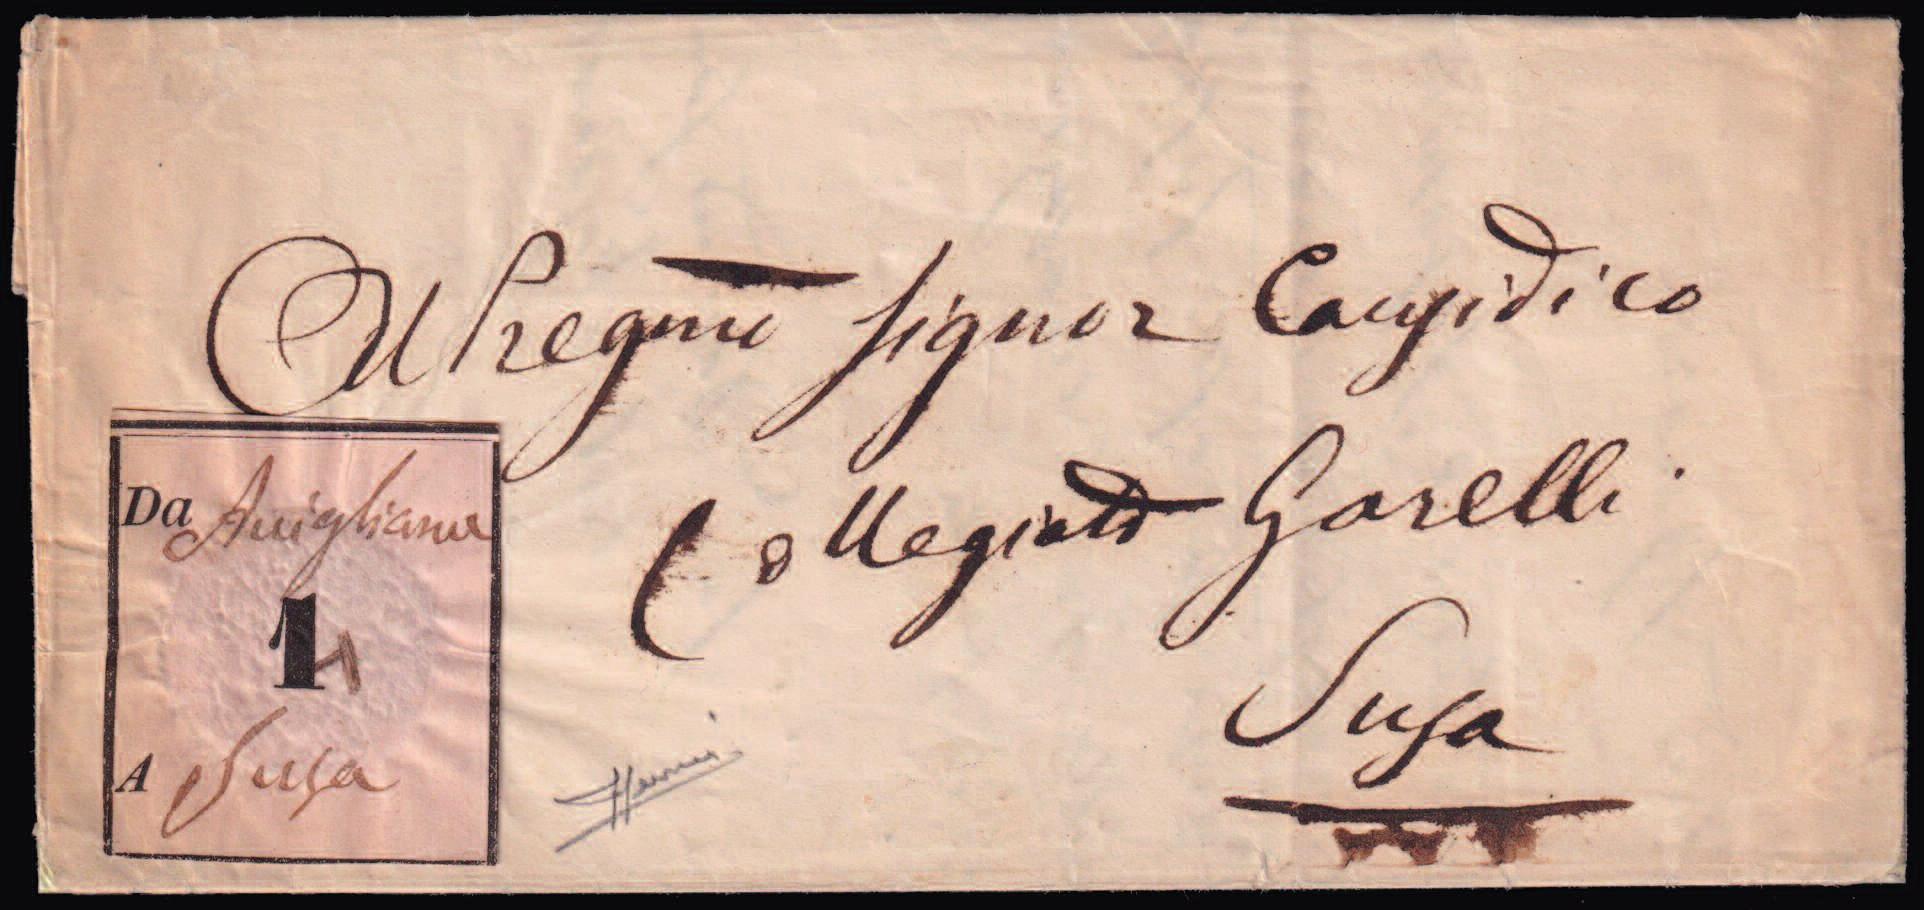 Al Pregmo Signor Causidico
Collegiato Garelli
Susa
Da Avigliana
1
A Susa